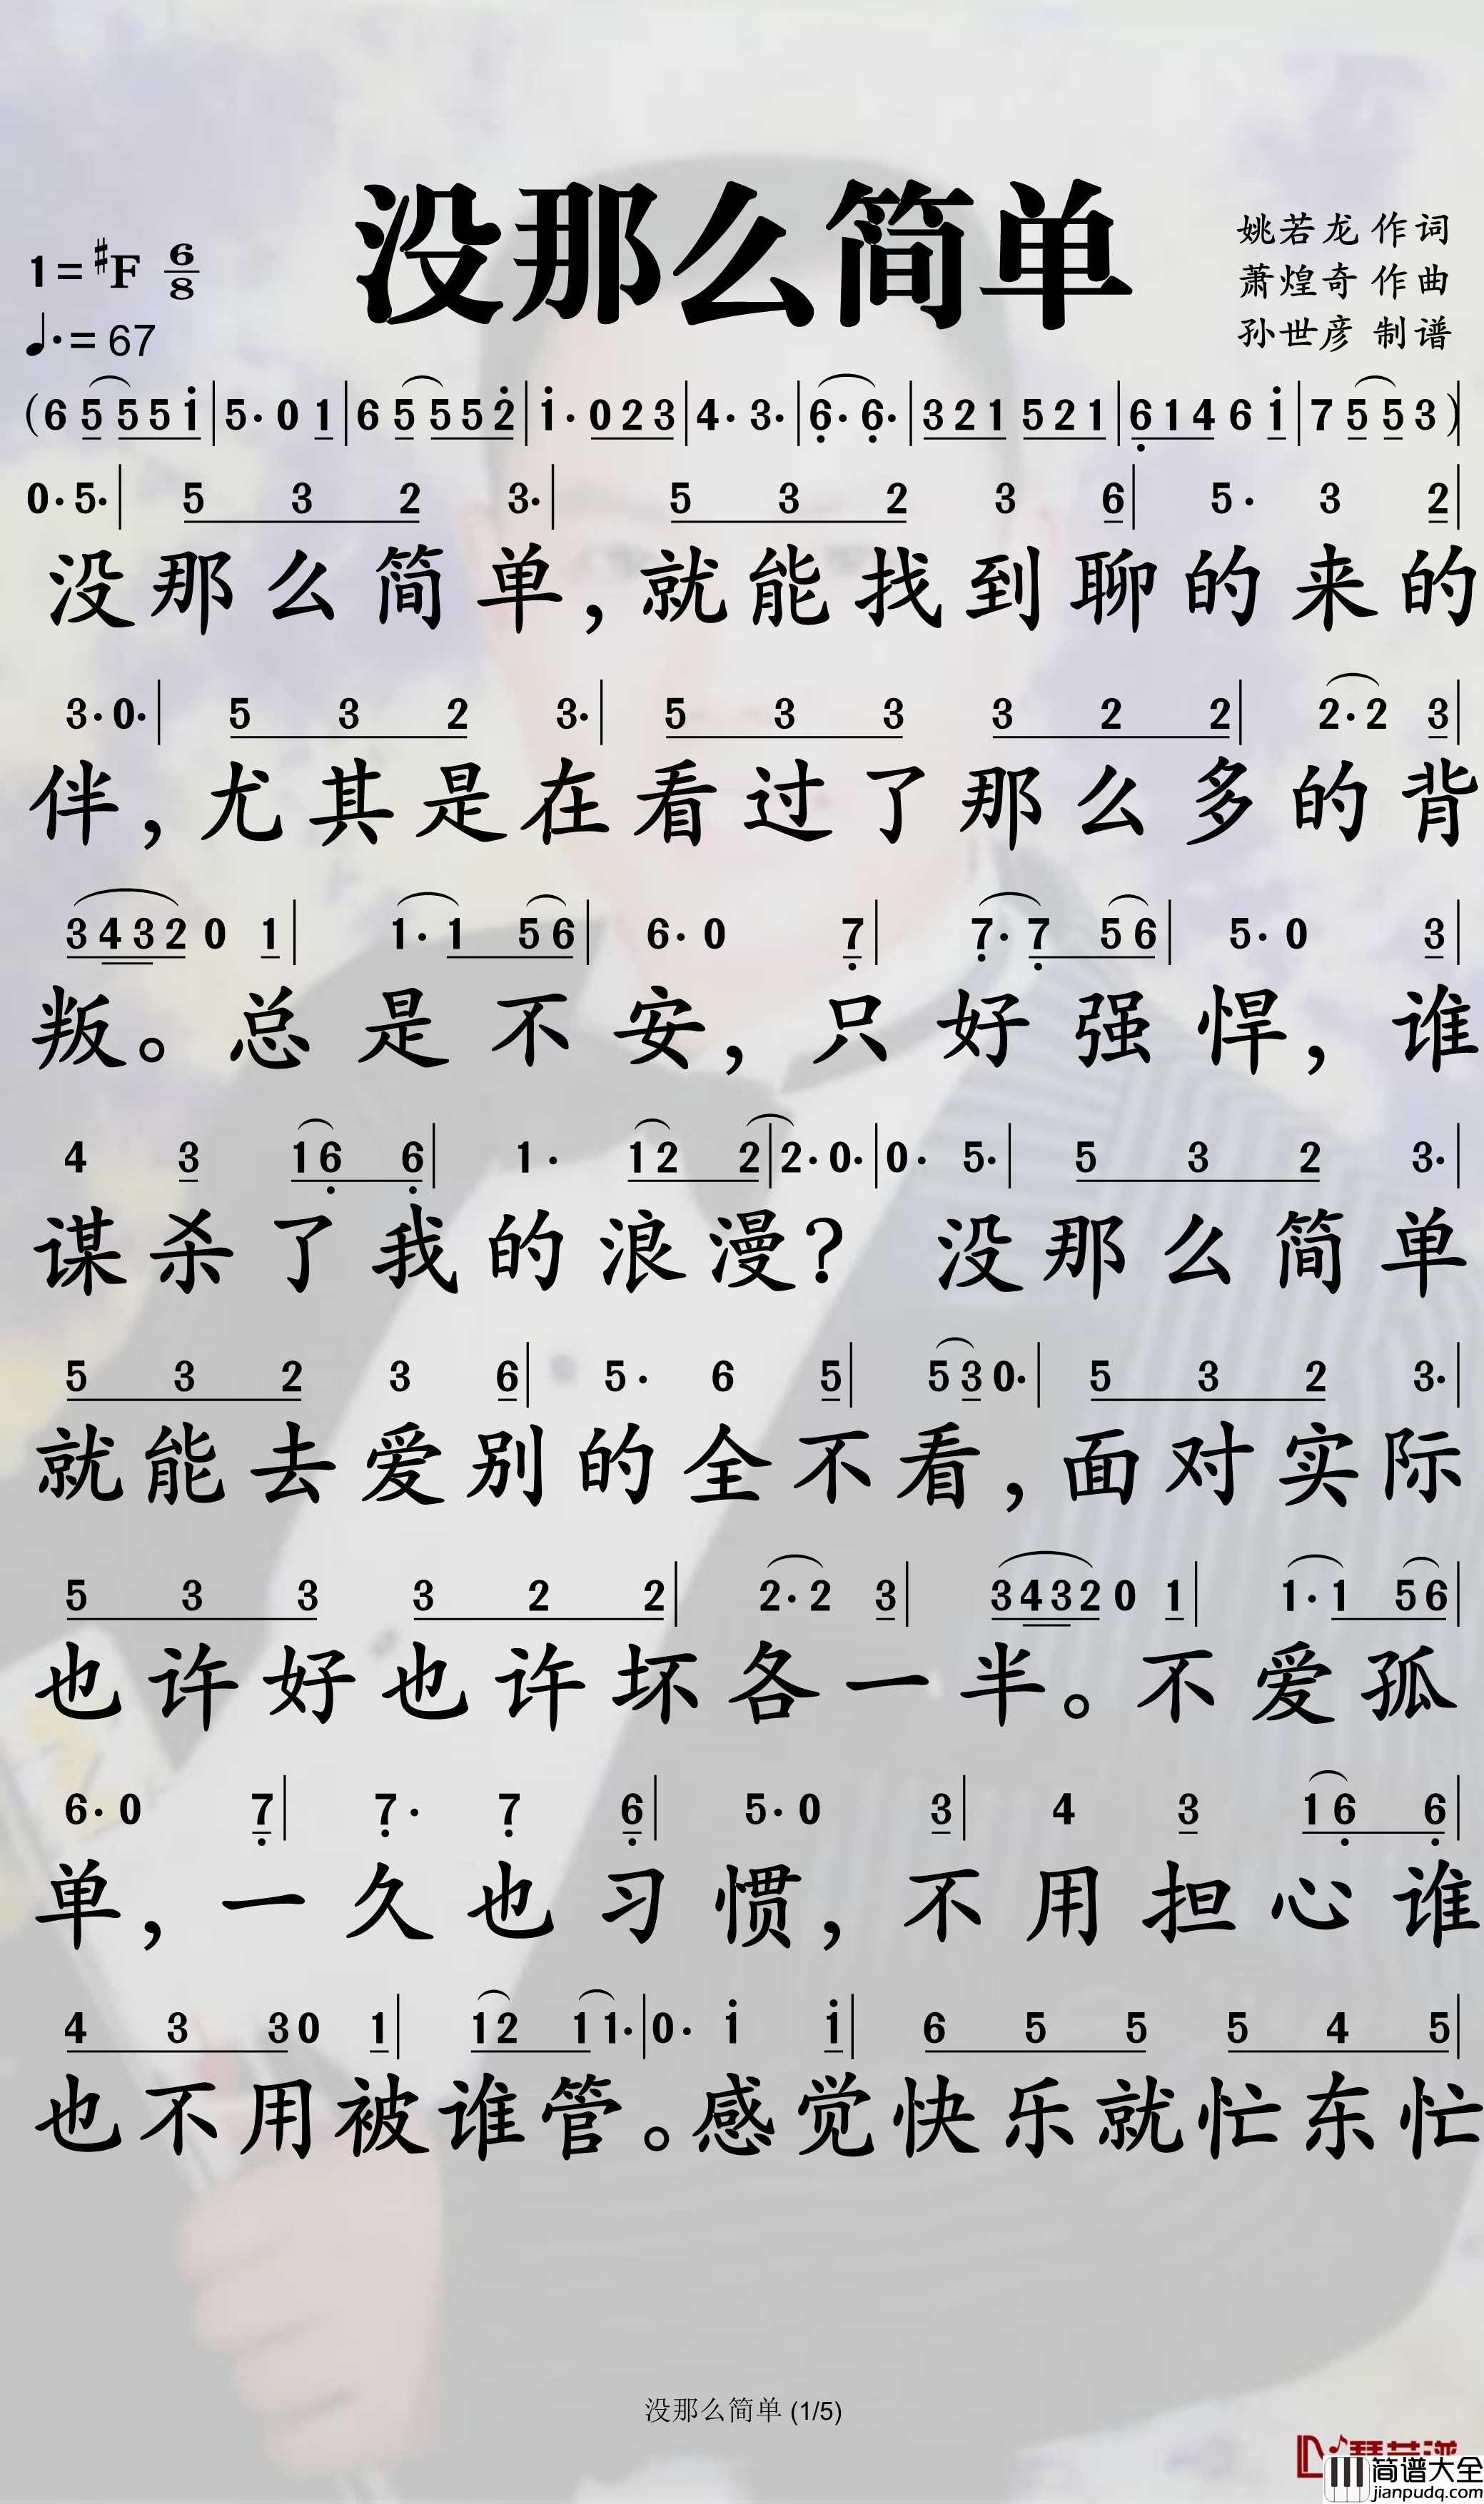 没那么简单
1=♯F 6/8
♩.=67
姚若龙 作词
萧煌奇 作曲
孙世彦 制谱
(6 5 5 5 i | 5· 0 1 | 6 5 5 5 2̇ | i· 0 2 3 | 4· 3· | 6̣· 6̣· | 3 2 1 5 2 1 | 6̣ 1 4 6 i | 7 5 5 3)
0· 5· | 5 3 2 3· | 5 3 2 3 6 | 5· 3 2
没那么简单，就能找到聊的来的
3· 0· | 5 3 2 3· | 5 3 3 3 2 2 | 2· 2 3 |
伴，尤其是在看过了那么多的背
3 4 3 2 0 1 | 1· 1 5 6 | 6· 0 7̣ | 7̣· 7̣ 5 6 | 5· 0 3 |
叛。总是不安，只好强悍，谁
4 3 1 6̣ 6̣ | 1· 1 2 2 | 2· 0· | 0· 5· | 5 3 2 3· |
谋杀了我的浪漫？没那么简单
5 3 2 3 6 | 5· 6 5 | 5 3 0· | 5 3 2 3· |
就能去爱别的全不看，面对实际
5 3 3 3 2 2 | 2· 2 3 | 3 4 3 2 0 1 | 1· 1 5 6 |
也许好也许坏各一半。不爱孤
6· 0 7̣ | 7̣· 7̣ 6̣ | 5· 0 3 | 4 3 1 6̣ 6̣ |
单，一久也习惯，不用担心谁
4 3 3 0 1 | 1 2 1 1· | 0· i i | 6 5 5 5 4 5 |
也不用被谁管。感觉快乐就忙东忙
没那么简单 (1/5)
简谱大全
jianpudq.com